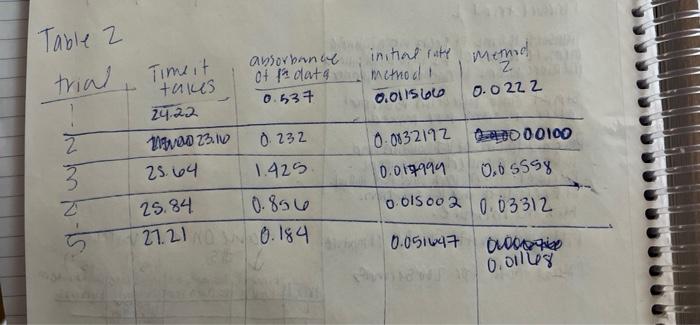 Table 2
trial Time it takes absorbance of 1st data initial rate method 1 method 2
1 24.22 0.537 0.011560 0.0222
2 23.10 0.232 0.0032192 0.00100
3 25.64 1.425 0.017999 0.05558
4 25.84 0.856 0.015002 0.03312
5 27.21 0.184 0.051647 0.01168